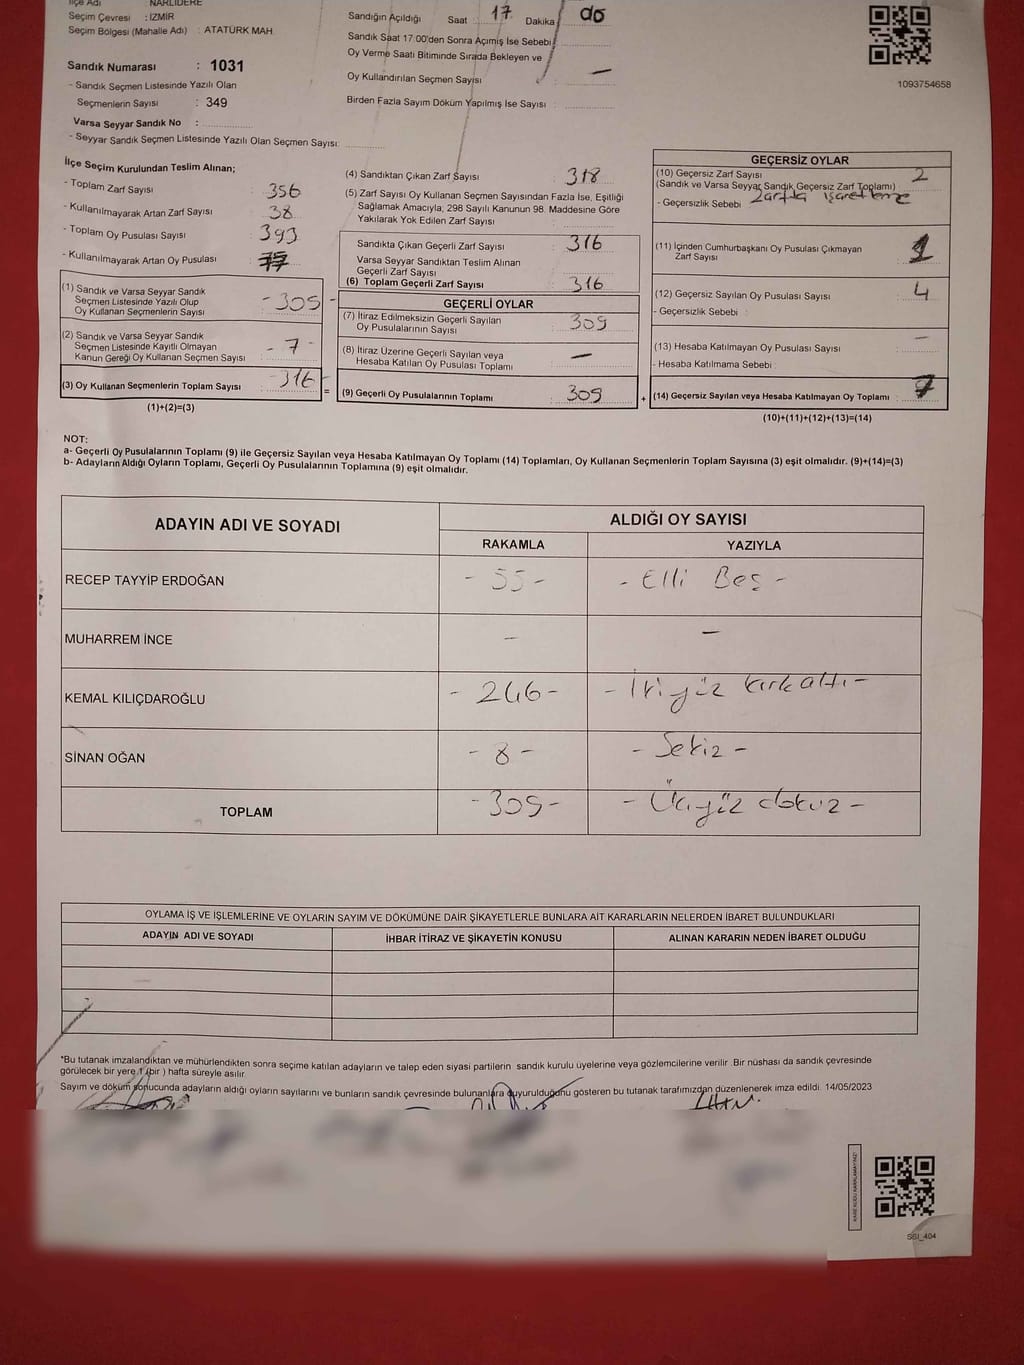 İlçe Adı : NARLIDERE
Seçim Çevresi : İZMİR
Seçim Bölgesi (Mahalle Adı) : ATATÜRK MAH.
Sandık Numarası : 1031
- Sandık Seçmen Listesinde Yazılı Olan
Seçmenlerin Sayısı : 349
Varsa Seyyar Sandık No :
- Seyyar Sandık Seçmen Listesinde Yazılı Olan Seçmen Sayısı:
Sandığın Açıldığı Saat 17 Dakika 00
Sandık Saat 17:00'den Sonra Açımış İse Sebebi
Oy Verme Saati Bitiminde Sırada Bekleyen ve
Oy Kullandırılan Seçmen Sayısı —
Birden Fazla Sayım Döküm Yapılmış İse Sayısı :
1093754658
İlçe Seçim Kurulundan Teslim Alınan;
- Toplam Zarf Sayısı 356
- Kullanılmayarak Artan Zarf Sayısı 38
- Toplam Oy Pusulası Sayısı 393
- Kullanılmayarak Artan Oy Pusulası
(1) Sandık ve Varsa Seyyar Sandık
Seçmen Listesinde Yazılı Olup
Oy Kullanan Seçmenlerin Sayısı - 309 -
(2) Sandık ve Varsa Seyyar Sandık
Seçmen Listesinde Kayıtlı Olmayan
Kanun Gereği Oy Kullanan Seçmen Sayısı - 7 -
(3) Oy Kullanan Seçmenlerin Toplam Sayısı - 316 -
(1)+(2)=(3)
(4) Sandıktan Çıkan Zarf Sayısı : 318
(5) Zarf Sayısı Oy Kullanan Seçmen Sayısından Fazla İse, Eşitliği
Sağlamak Amacıyla; 298 Sayılı Kanunun 98. Maddesine Göre
Yakılarak Yok Edilen Zarf Sayısı
Sandıkta Çıkan Geçerli Zarf Sayısı : 316
Varsa Seyyar Sandıktan Teslim Alınan
Geçerli Zarf Sayısı
(6) Toplam Geçerli Zarf Sayısı : 316
GEÇERLİ OYLAR
(7) İtiraz Edilmeksizin Geçerli Sayılan
Oy Pusulalarının Sayısı : 309
(8) İtiraz Üzerine Geçerli Sayılan veya
Hesaba Katılan Oy Pusulası Toplamı : —
= (9) Geçerli Oy Pusulalarının Toplamı : 309 +
GEÇERSİZ OYLAR
(10) Geçersiz Zarf Sayısı 2
(Sandık ve Varsa Seyyar Sandık Geçersiz Zarf Toplamı)
- Geçersizlik Sebebi Zarfta işaretleme
(11) İçinden Cumhurbaşkanı Oy Pusulası Çıkmayan
Zarf Sayısı : 1
(12) Geçersiz Sayılan Oy Pusulası Sayısı : 4
- Geçersizlik Sebebi :
(13) Hesaba Katılmayan Oy Pusulası Sayısı : —
- Hesaba Katılmama Sebebi :
(14) Geçersiz Sayılan veya Hesaba Katılmayan Oy Toplamı : 7
(10)+(11)+(12)+(13)=(14)
NOT:
a- Geçerli Oy Pusulalarının Toplamı (9) ile Geçersiz Sayılan veya Hesaba Katılmayan Oy Toplamı (14) Toplamları, Oy Kullanan Seçmenlerin Toplam Sayısına (3) eşit olmalıdır. (9)+(14)=(3)
b- Adayların Aldığı Oyların Toplamı, Geçerli Oy Pusulalarının Toplamına (9) eşit olmalıdır.
ADAYIN ADI VE SOYADI ALDIĞI OY SAYISI
RAKAMLA YAZIYLA
RECEP TAYYİP ERDOĞAN - 55 - - Elli Beş -
MUHARREM İNCE — —
KEMAL KILIÇDAROĞLU - 246 - - İkiyüz kırkaltı -
SİNAN OĞAN - 8 - - Sekiz -
TOPLAM - 309 - - Üçyüz dokuz -
OYLAMA İŞ VE İŞLEMLERİNE VE OYLARIN SAYIM VE DÖKÜMÜNE DAİR ŞİKAYETLERLE BUNLARA AİT KARARLARIN NELERDEN İBARET BULUNDUKLARI
ADAYIN ADI VE SOYADI İHBAR İTİRAZ VE ŞİKAYETİN KONUSU ALINAN KARARIN NEDEN İBARET OLDUĞU
*Bu tutanak imzalandıktan ve mühürlendikten sonra seçime katılan adayların ve talep eden siyasi partilerin sandık kurulu üyelerine veya gözlemcilerine verilir. Bir nüshası da sandık çevresinde
görülecek bir yere 1 (bir) hafta süreyle asılır.
Sayım ve döküm sonucunda adayların aldığı oyların sayılarını ve bunların sandık çevresinde bulunanlara duyurulduğunu gösteren bu tutanak tarafımızdan düzenlenerek imza edildi. 14/05/2023
SSI_404